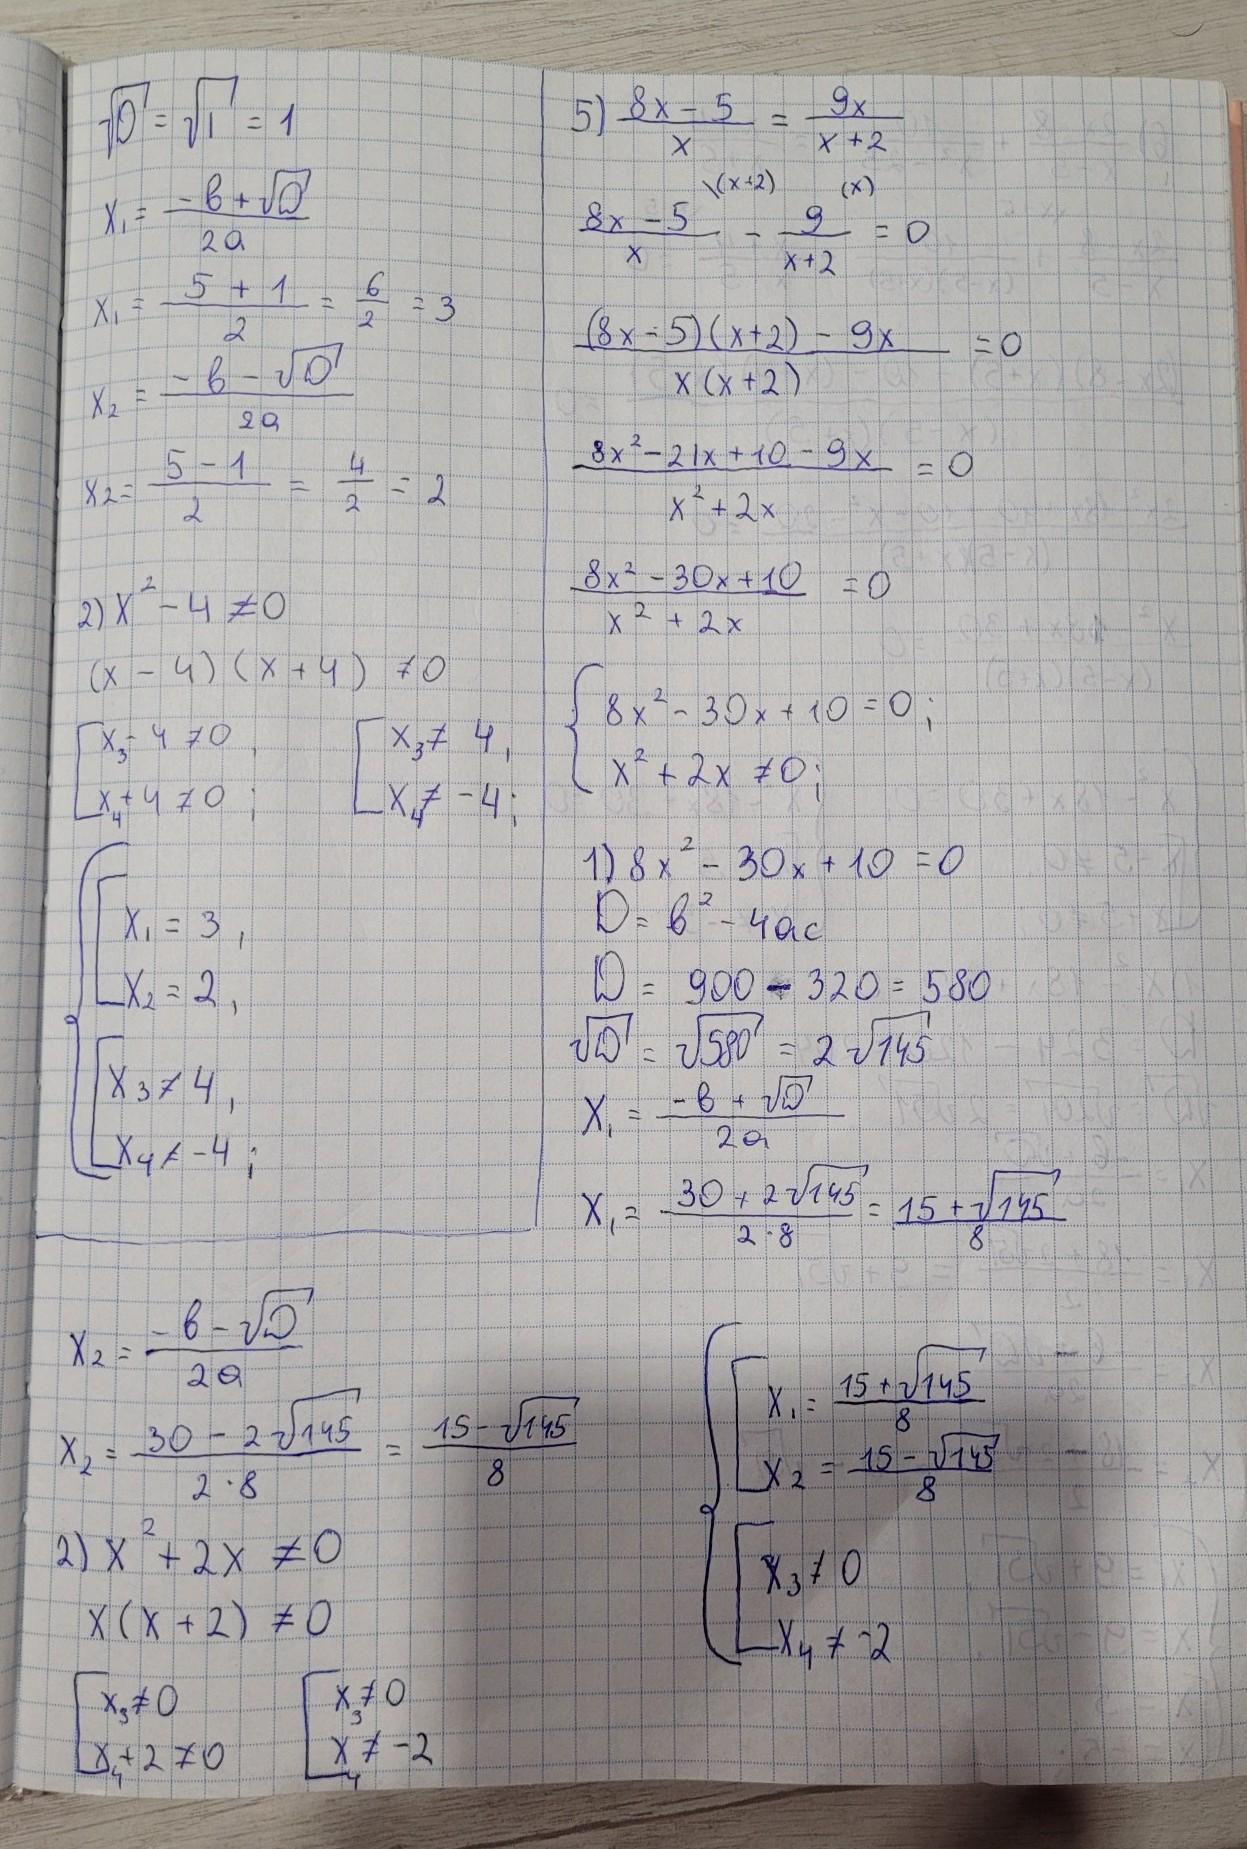 √D = √1 = 1
x₁ = (-b + √D) / 2a
x₁ = (5 + 1) / 2 = 6/2 = 3
x₂ = (-b - √D) / 2a
x₂ = (5 - 1) / 2 = 4/2 = 2
2) x² - 4 ≠ 0
(x - 4) (x + 4) ≠ 0
[ x₃ - 4 ≠ 0, [ x₃ ≠ 4,
x₄ + 4 ≠ 0; x₄ ≠ -4;
{ [ x₁ = 3,
x₂ = 2,
[ x₃ ≠ 4,
x₄ ≠ -4;
5) (8x - 5) / x = 9x / (x + 2)
(8x - 5) / x \(x+2) - 9 / (x+2) (x) = 0
((8x - 5)(x+2) - 9x) / (x(x+2)) = 0
(8x² - 21x + 10 - 9x) / (x² + 2x) = 0
(8x² - 30x + 10) / (x² + 2x) = 0
{ 8x² - 30x + 10 = 0;
x² + 2x ≠ 0;
1) 8x² - 30x + 10 = 0
D = b² - 4ac
D = 900 - 320 = 580
√D = √580 = 2√145
x₁ = (-b + √D) / 2a
x₁ = (30 + 2√145) / (2·8) = (15 + √145) / 8
x₂ = (-b - √D) / 2a
x₂ = (30 - 2√145) / (2·8) = (15 - √145) / 8
2) x² + 2x ≠ 0
x(x + 2) ≠ 0
[ x₃ ≠ 0 [ x₃ ≠ 0
x₄ + 2 ≠ 0 x₄ ≠ -2
{ [ x₁ = (15 + √145) / 8
x₂ = (15 - √145) / 8
[ x₃ ≠ 0
x₄ ≠ -2